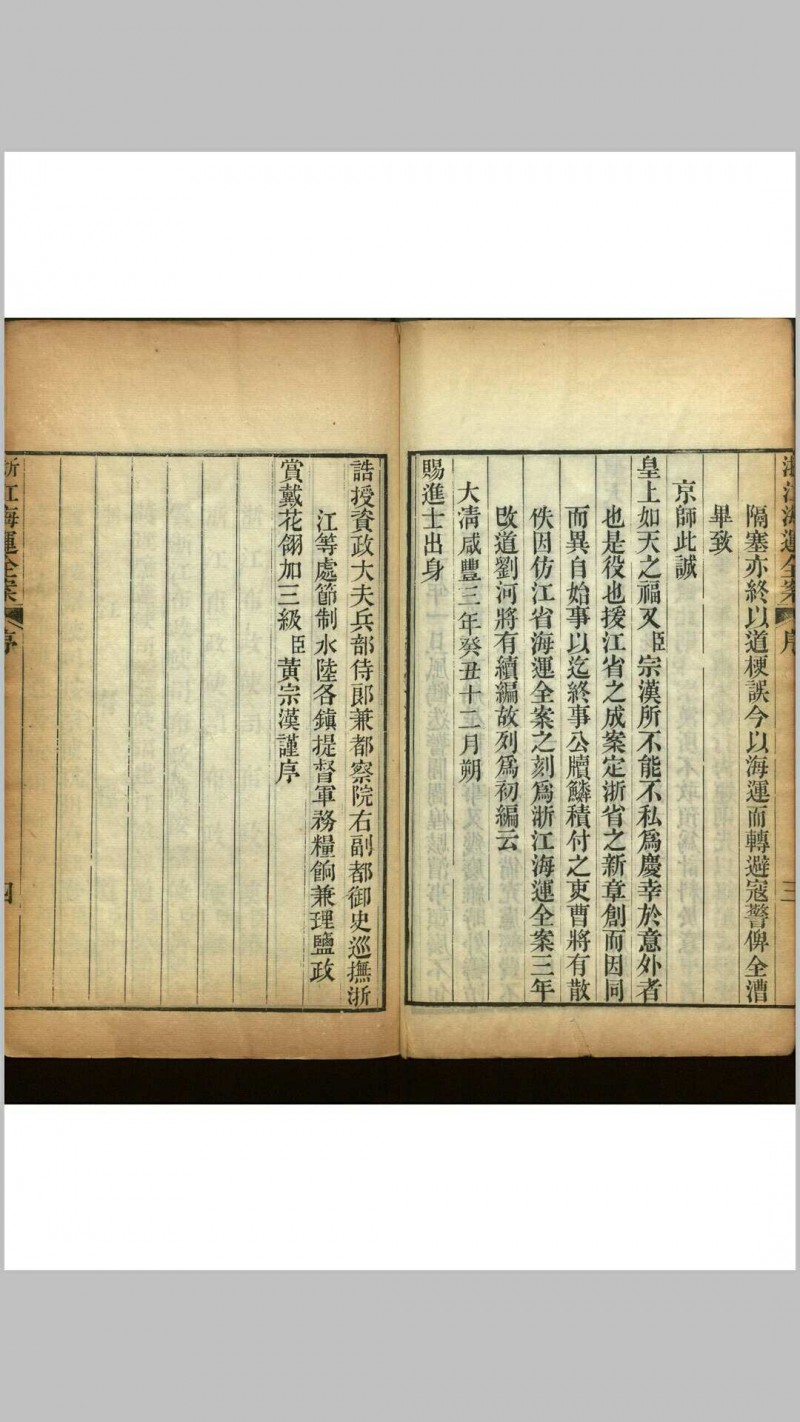 浙江海運全案 序 三
隔塞亦終以道梗誤今以海運而轉避寇警俾全漕
畢致
京師此誠
皇上如天之福又臣宗漢所不能不私爲慶幸於意外者
也是役也援江省之成案定浙省之新章創而因同
而異自始事以迄終事公牘鱗積付之吏曹將有散
佚因仿江省海運全案之刻爲浙江海運全案三年
改道劉河將有續編故列爲初編云
大清咸豐三年癸丑十二月朔
賜進士出身
誥授資政大夫兵部侍郎兼都察院右副都御史巡撫浙
江等處節制水陸各鎮提督軍務糧餉兼理鹽政
賞戴花翎加三級臣黃宗漢謹序
浙江海運全案 序 四